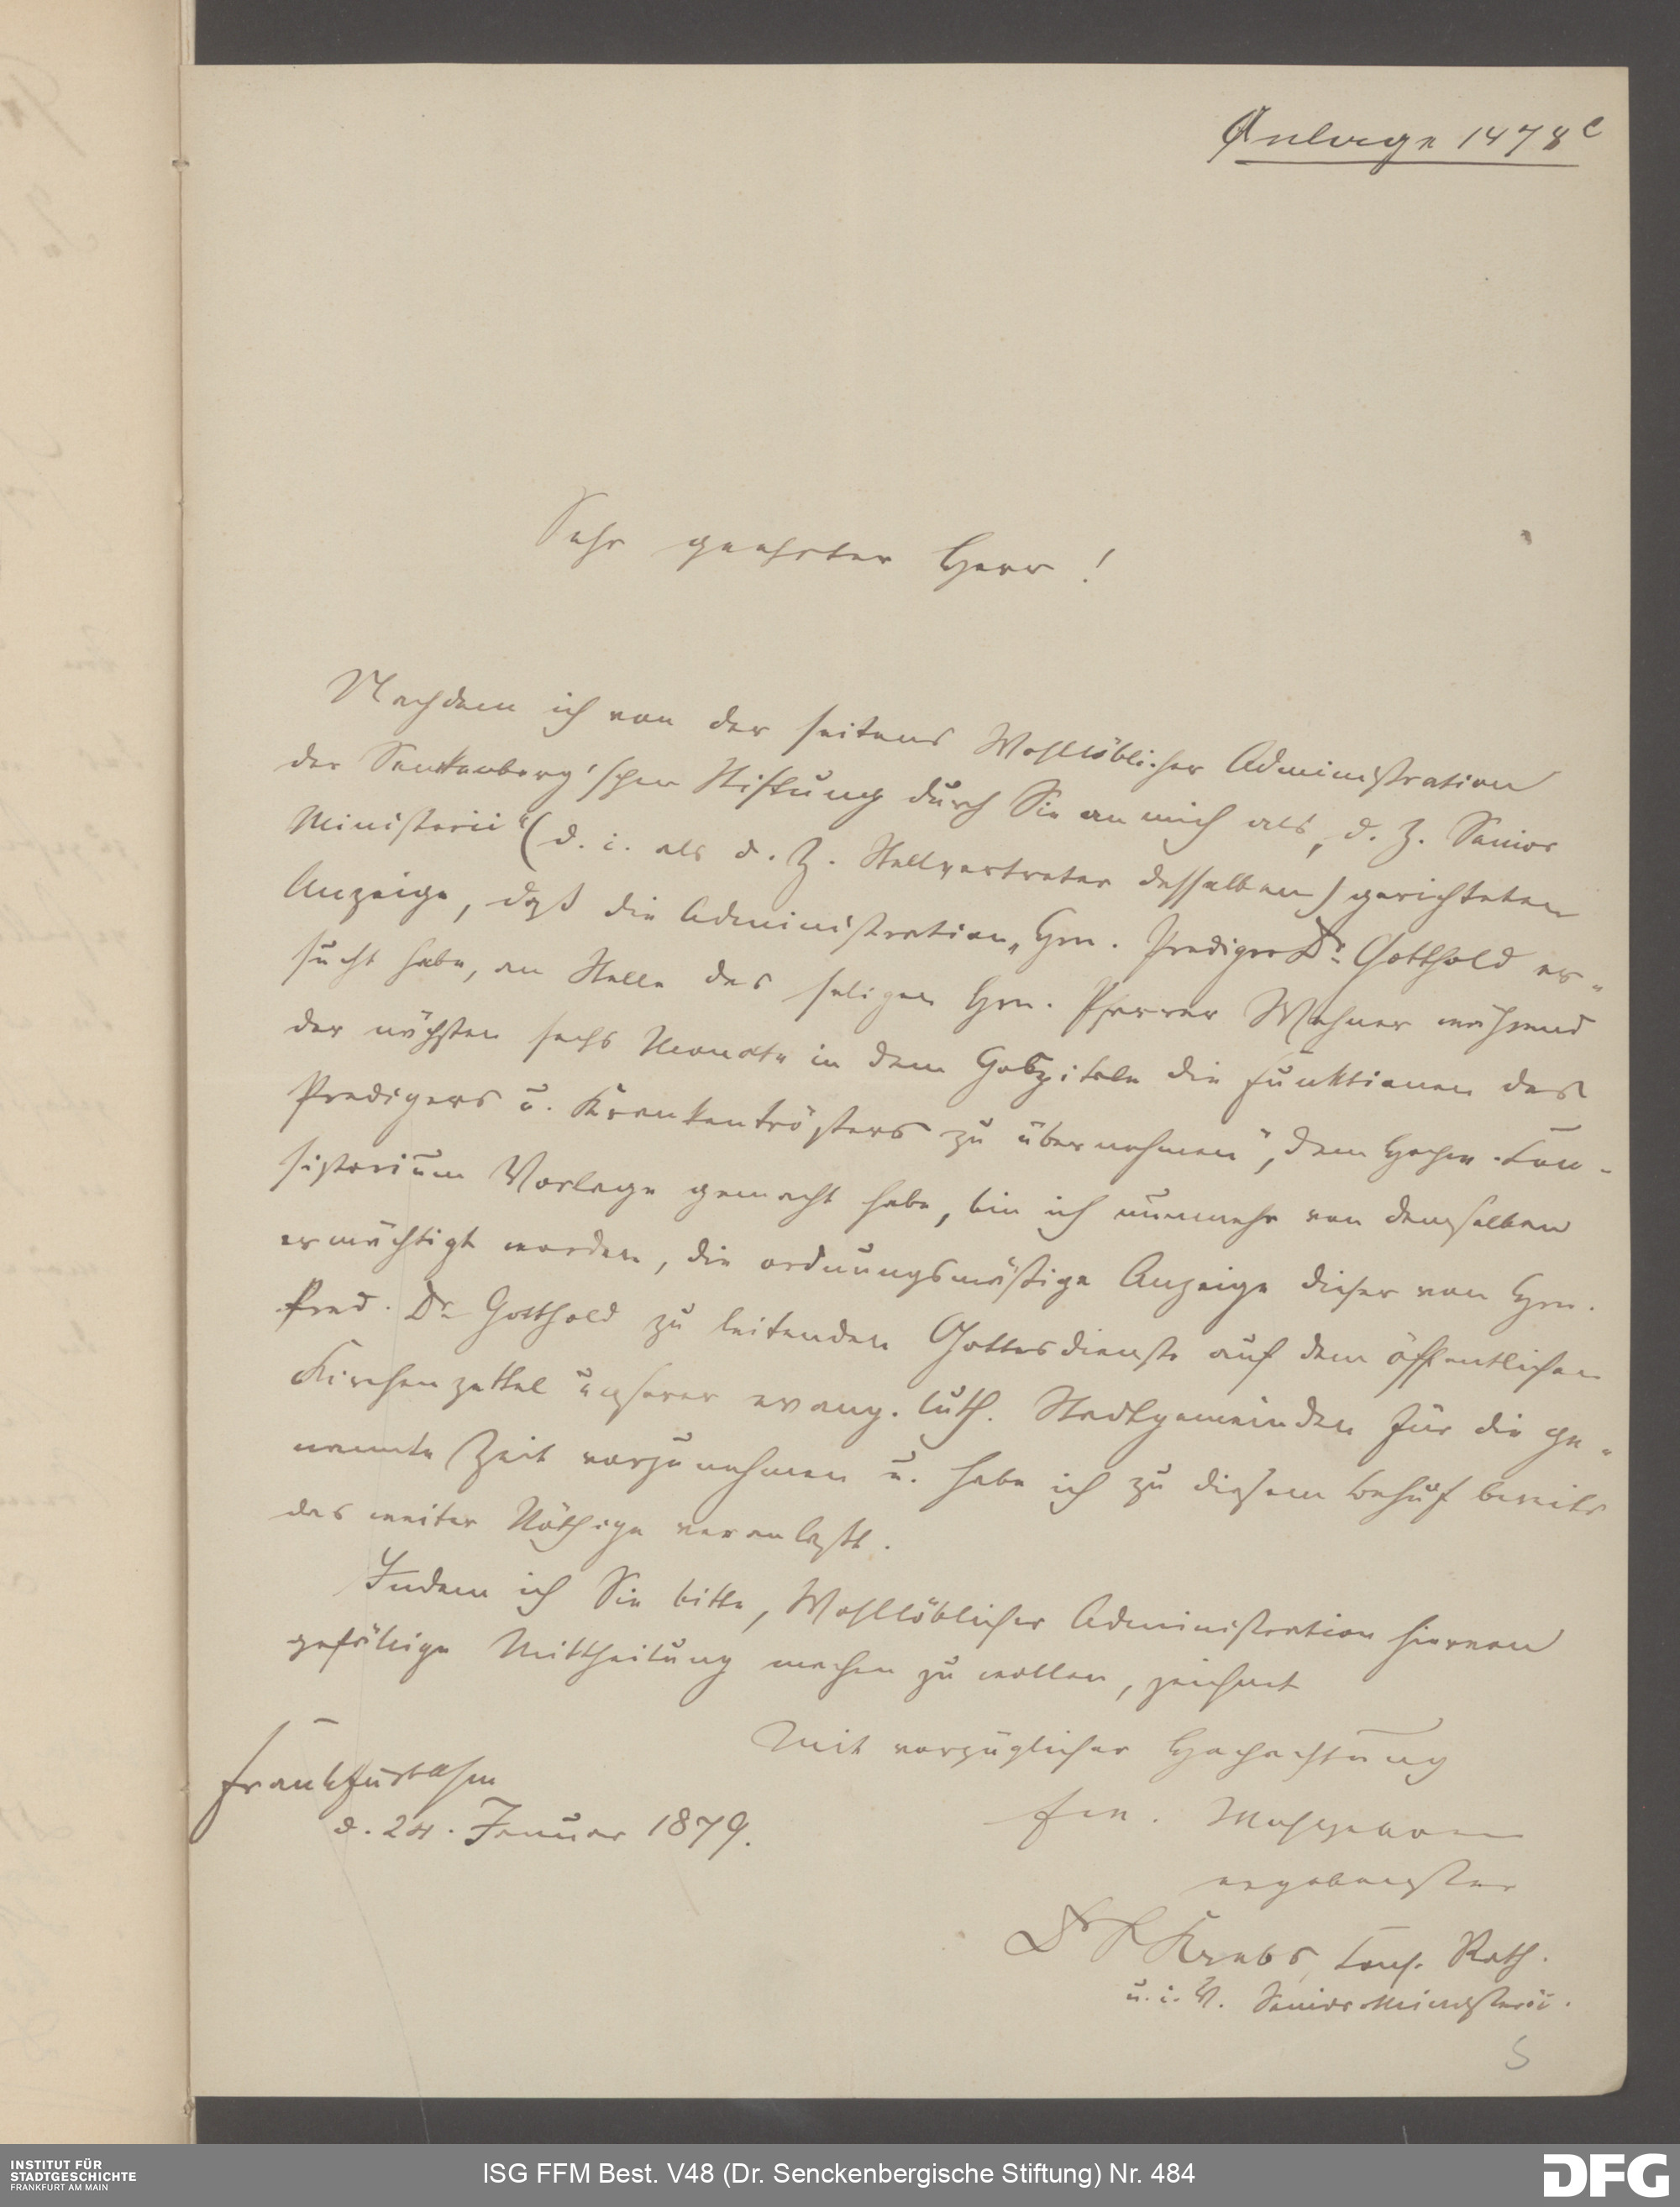 Anlage 1478c
Sehr geehrter Herr!
Nachdem ich von der seitens Wohllöblicher Administration
der Senkenberg'schen Stiftung durch Sie an mich als „d. Z. Senior
Ministerii“ (d. i. als d. Z. Stellvertreter desselben) gerichteten
Anzeige, daß die Administration „Hrn. Prediger Dr. Gotthold er-
sucht habe, an Stelle des seligen Hrn. Pfarrer Wehner während
der nächsten sechs Monate in dem Hospitale die Funktionen des
Predigers u. Krankentrösters zu übernehmen“, dem Hochw. Con-
sistorium Vorlage gemacht habe, bin ich nunmehr von demselben
ermächtigt worden, die ordnungsmäßige Anzeige dieser von Hrn.
Pred. Dr. Gotthold zu leitenden Gottesdienste auf dem öffentlichen
Kirchenzettel unserer evang. luth. Stadtgemeinden für die ge-
nannte Zeit vorzunehmen u. habe ich zu diesem Behuf bereits
das weiter Nöthige veranlaßt.
Indem ich Sie bitte, Wohllöblicher Administration hiervon
gefällige Mittheilung machen zu wollen, zeichnet
Mit vorzüglicher Hochachtung
Frankfurt a/m
d. 24. Januar 1879.
Euer Wohlgeboren
ergebenster
Dr Krebs, Cons. Rath.
u. i. V. Senior Ministerii.
INSTITUT FÜR
STADTGESCHICHTE
FRANKFURT AM MAIN
ISG FFM Best. V48 (Dr. Senckenbergische Stiftung) Nr. 484
DFG